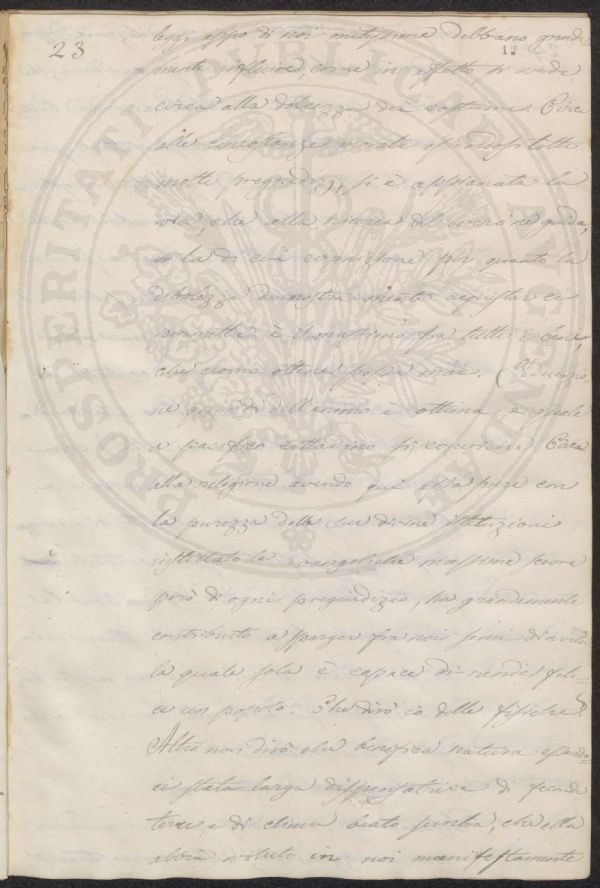 23
12
leggi appo di noi mitissime debbano grande
mente influire, come in effetto si vede
circa alla dolcezza dei costumi. Circa
alle circostanze morali essendosi tolti
molti pregiudizj, si è appianata la
via, che alla ricerca del vero ne guida,
e la di cui cognizione per quanto la
debolezza di nostra mente acquistar ci
permetta è il massimo fra tutti i beni,
che uomo ottener possa mai. Educazio
ne quindi dell'animo è ottima, e quale
a pacifico cittadino si conviene. Circa
alla religione avendo qui essa pure con
la purezza delle sue divine istituzioni
instillato le evangeliche massime scevre
però di ogni pregiudizio, ha grandemente
contribuito a sparger fra noi semi di
la quale sola è capace di render feli-
ce un popolo. Che dirò io delle fisiche?
Altro non dirò che benefica natura essendo-
ci stata larga dispensatrice di feconde
terre, e di clima beato sembra, che ella
abbia voluto in noi manifestamente
PROSPERITATI PVBLICAE AVGENDAE